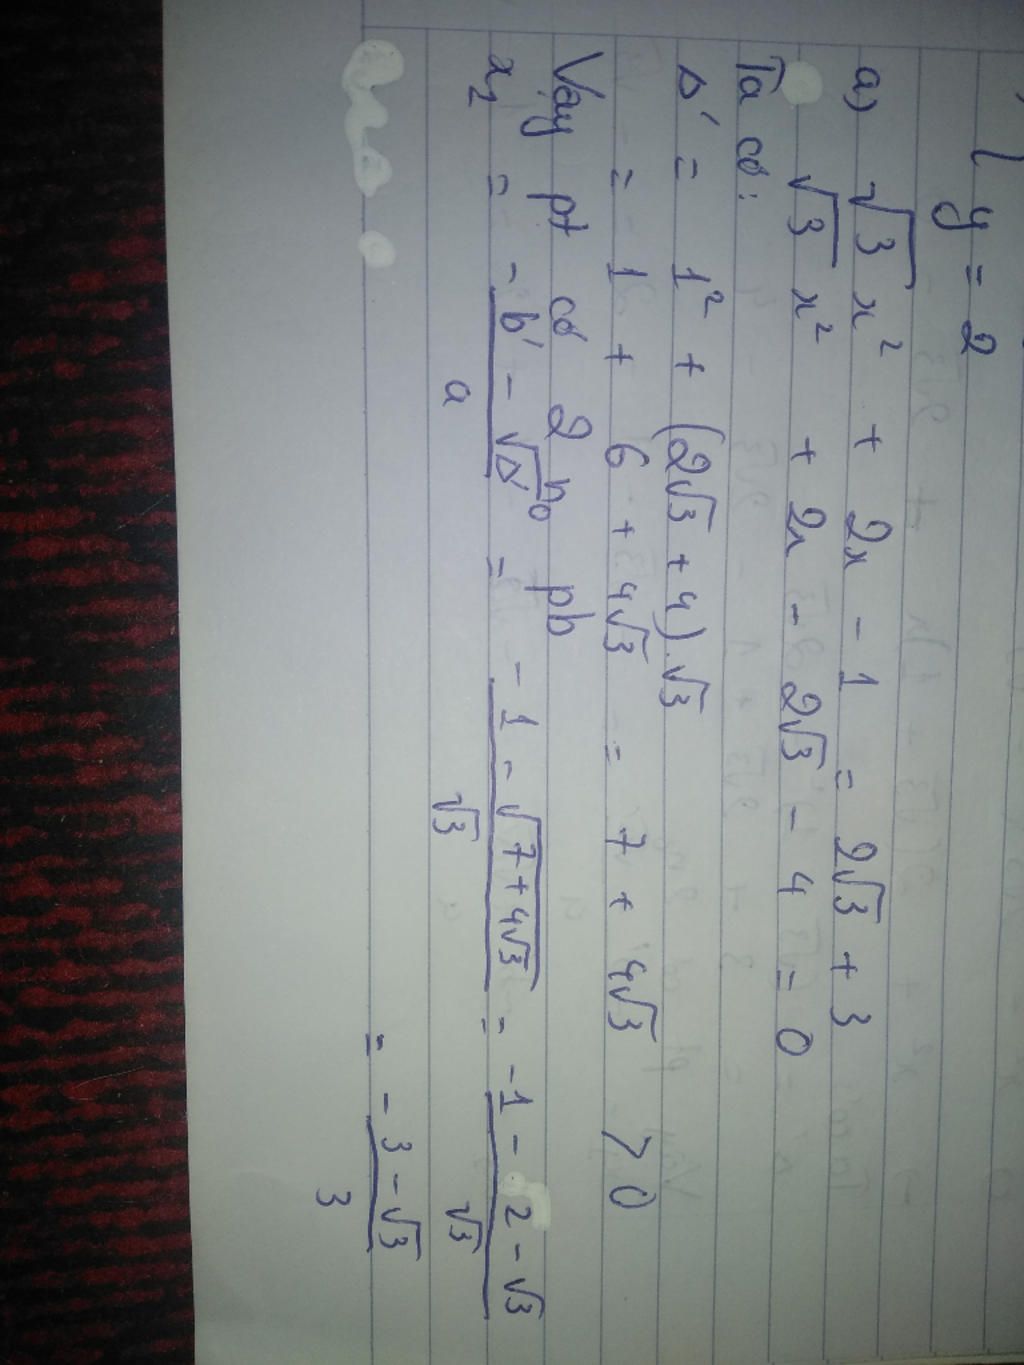 y = 2
a) √3 x² + 2x - 1 = 2√3 + 3
√3 x² + 2x - 2√3 - 4 = 0
Ta có:
Δ' = 1² + (2√3 + 4).√3
= 1 + 6 + 4√3 = 7 + 4√3 > 0
Vậy pt có 2 n₀ pb
x₂ = (-b' - √Δ')/a = (-1 - √(7+4√3))/√3 = (-1 - 2 - √3)/√3
= (-3 - √3)/3